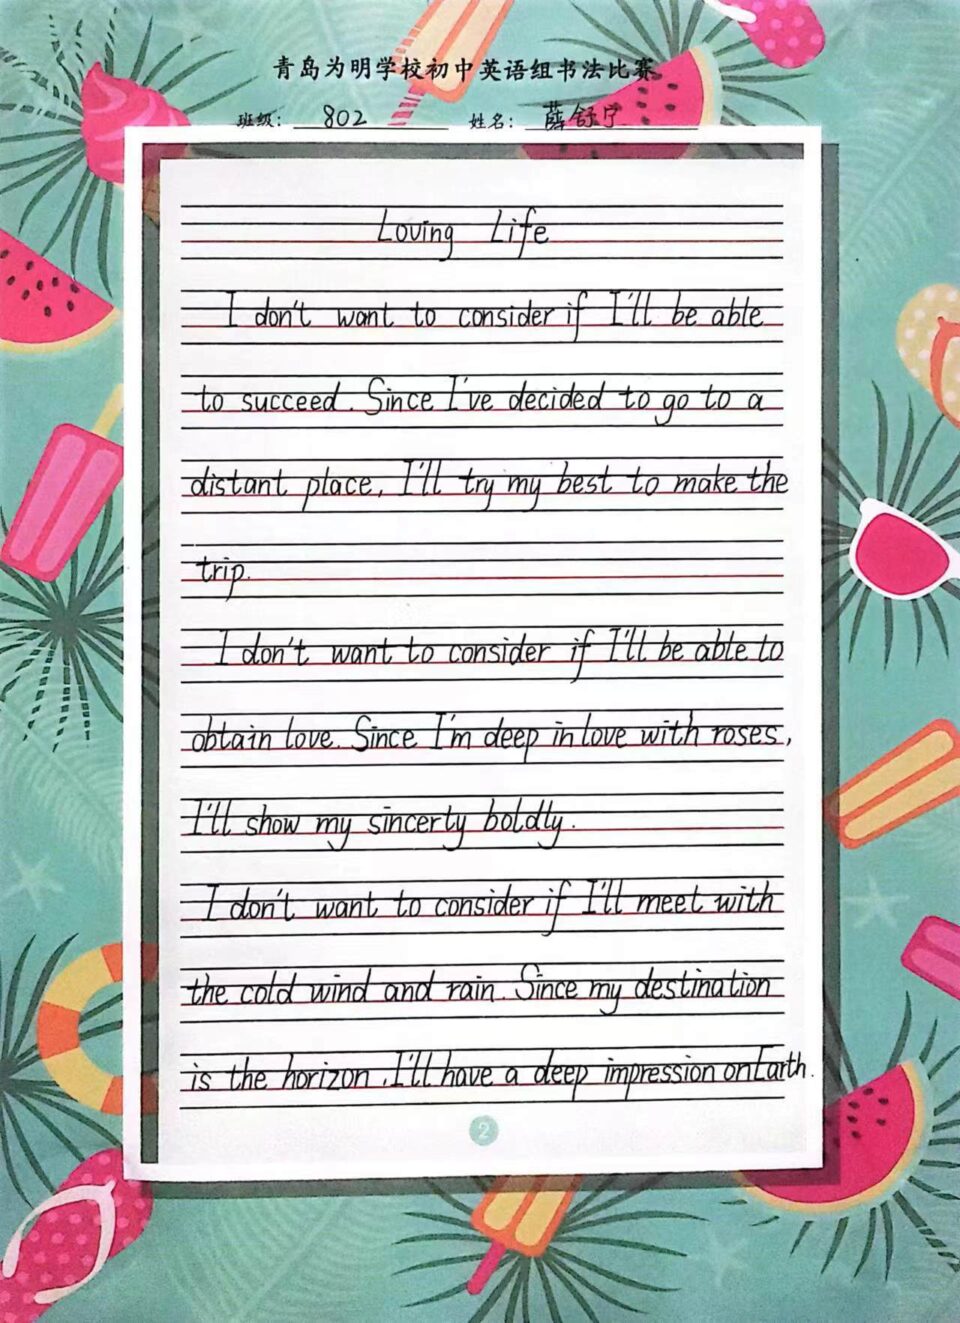 青岛为明学校初中英语组书法比赛
班级: 802 姓名: 薛舒宁
Loving Life
I don't want to consider if I'll be able
to succeed. Since I've decided to go to a
distant place, I'll try my best to make the
trip.
I don't want to consider if I'll be able to
obtain love. Since I'm deep in love with roses,
I'll show my sincerty boldly.
I don't want to consider if I'll meet with
the cold wind and rain. Since my destination
is the horizon, I'll have a deep impression on Earth.
2